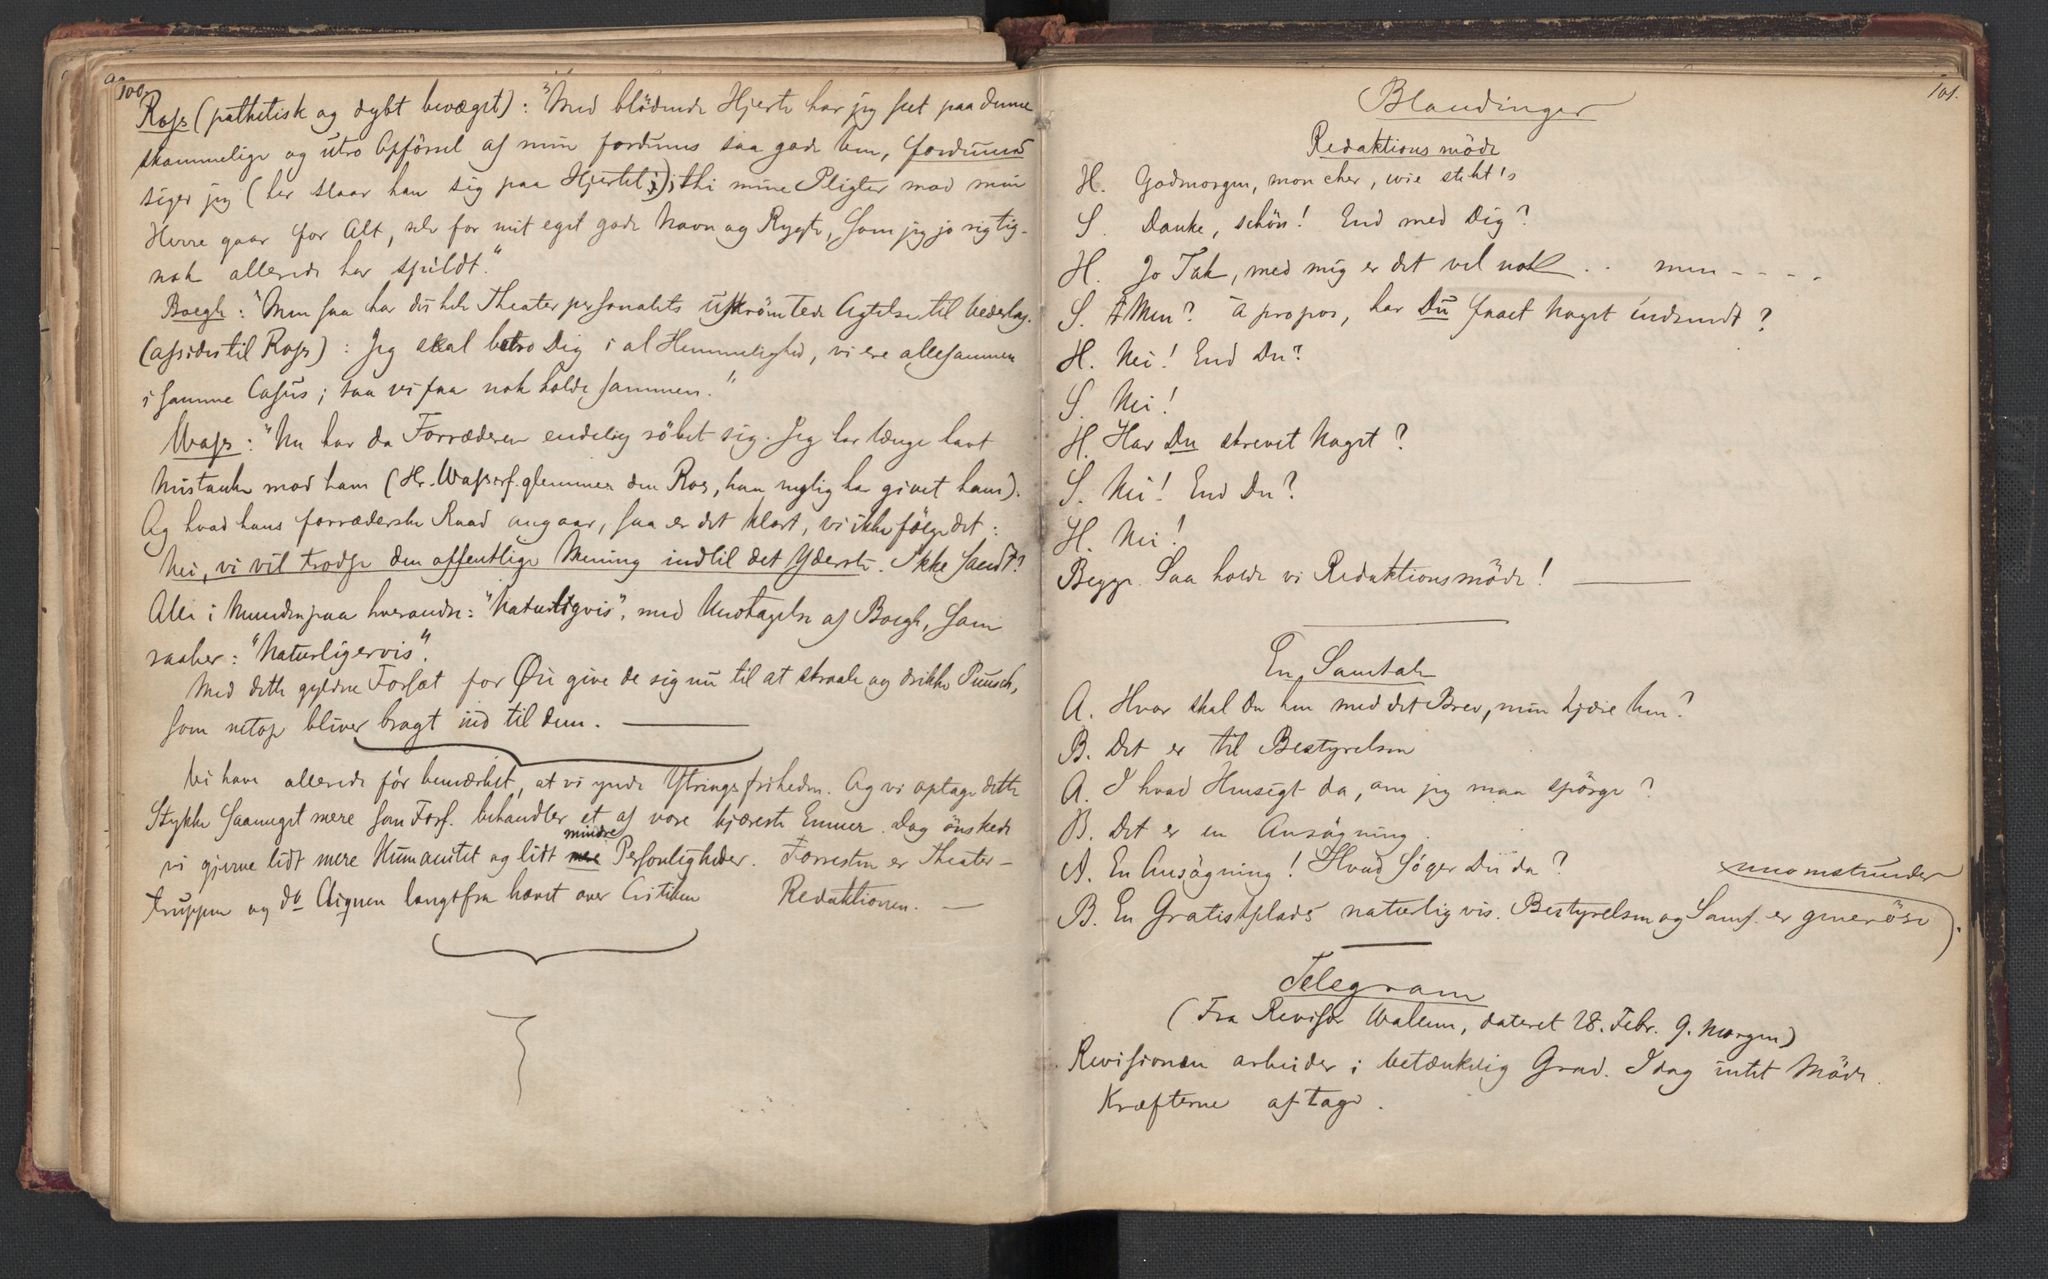 100.
Rass (pathetisk og dybt bevæget): "Med blödende Hjerte har jeg seet paa denne
skammelige og utro Opförsel af min fordums saa gode Ven, fordums
siger jeg (her slaar han sig paa Hjertet); thi mine Pligter mod min
Herre gaar for Alt, selv for mit eget gode Navn og Rygte, som jeg jo rigtig-
nok allerede har spildt."
Boegh: "Men saa har du hele Theaterpersonalets uskrömtede Agtelse til Vederlag.
(afsides til Rass): Jeg skal betro Dig i al Hemmelighed, vi ere allesammen
i samme Casus; saa vi faa nok holde sammen."
Wass: "Nu har da Forræderen endelig röbet sig. Jeg har længe havt
Mistanke mod ham (Hr. Wasserf. glemmer den Ros, han nylig har givet ham).
Og hvad hans forræderske Raad angaar, saa er det klart, vi ikke fölge det:
Nei, vi vil trodse den offentlige Mening indtil det Yderste. Ikke sandt?
Alle i Munden paa hverandre: "Naturligvis", med Undtagelse af Boegh, som
raaber: "Naturligervis".
Med dette gyldne Forsæt for Öie give de sig nu til at skraale og drikke Punsch,
som netop bliver bragt ind til dem.
Vi have allerede för bemærket, at vi ynde Ytringsfriheden. Og vi optage dette
Stykke saameget mere som Forf. behandler et af vore kjæreste Emner. Dog önskede
mindre
vi gjerne lidt mere Humanitet og lidt mere Personligheder. Forresten er Theater-
truppen og do Aignen langtfra hævet over Critiken Redaktionen.
101.
Blandinger
Redaktionsmöde
H. Godmorgen, mon cher, wie steht's
S. Danke, schön! End med Dig?
H. Jo Tak, med mig er det vel nok .. men - - - -
S. Men? à propos, har Du faaet Noget indsendt?
H. Nei! End Du?
S. Nei!
H. Har Du skrevet Noget?
S. Nei! End Du?
H. Nei!
Begge. Saa holde vi Redaktionsmöde!
En Samtale
A. Hvor skal Du hen med det Brev, min kjære Ven?
B. Det er til Bestyrelsen
A. I hvad Hensigt da, om jeg maa spörge?
B. Det er en Ansögning.
A. En Ansögning! Hvad söger Du da?
B. En Gratistplads naturligvis. Bestyrelsen og Samf. er generöse
nuomstunder).
Telegram
(Fra Revisor Wallem, dateret 28. Febr. 9. Morgen)
Revisionen arbeider i betænkelig Grad. Idag intet Möde.
Kræfterne aftage.